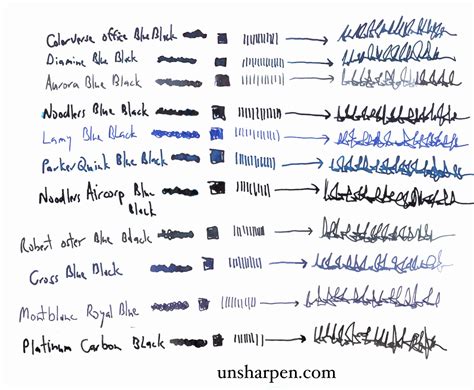 Colorverse Office Blue Black
Diamine Blue Black
Aurora Blue Black
Noodlers Blue Black
Lamy Blue Black
Parker Quink Blue Black
Noodlers Aircorp Blue
Black
Robert Oster Blue Black
Cross Blue Black
Montblanc Royal Blue
Platinum Carbon Black
unsharpen.com